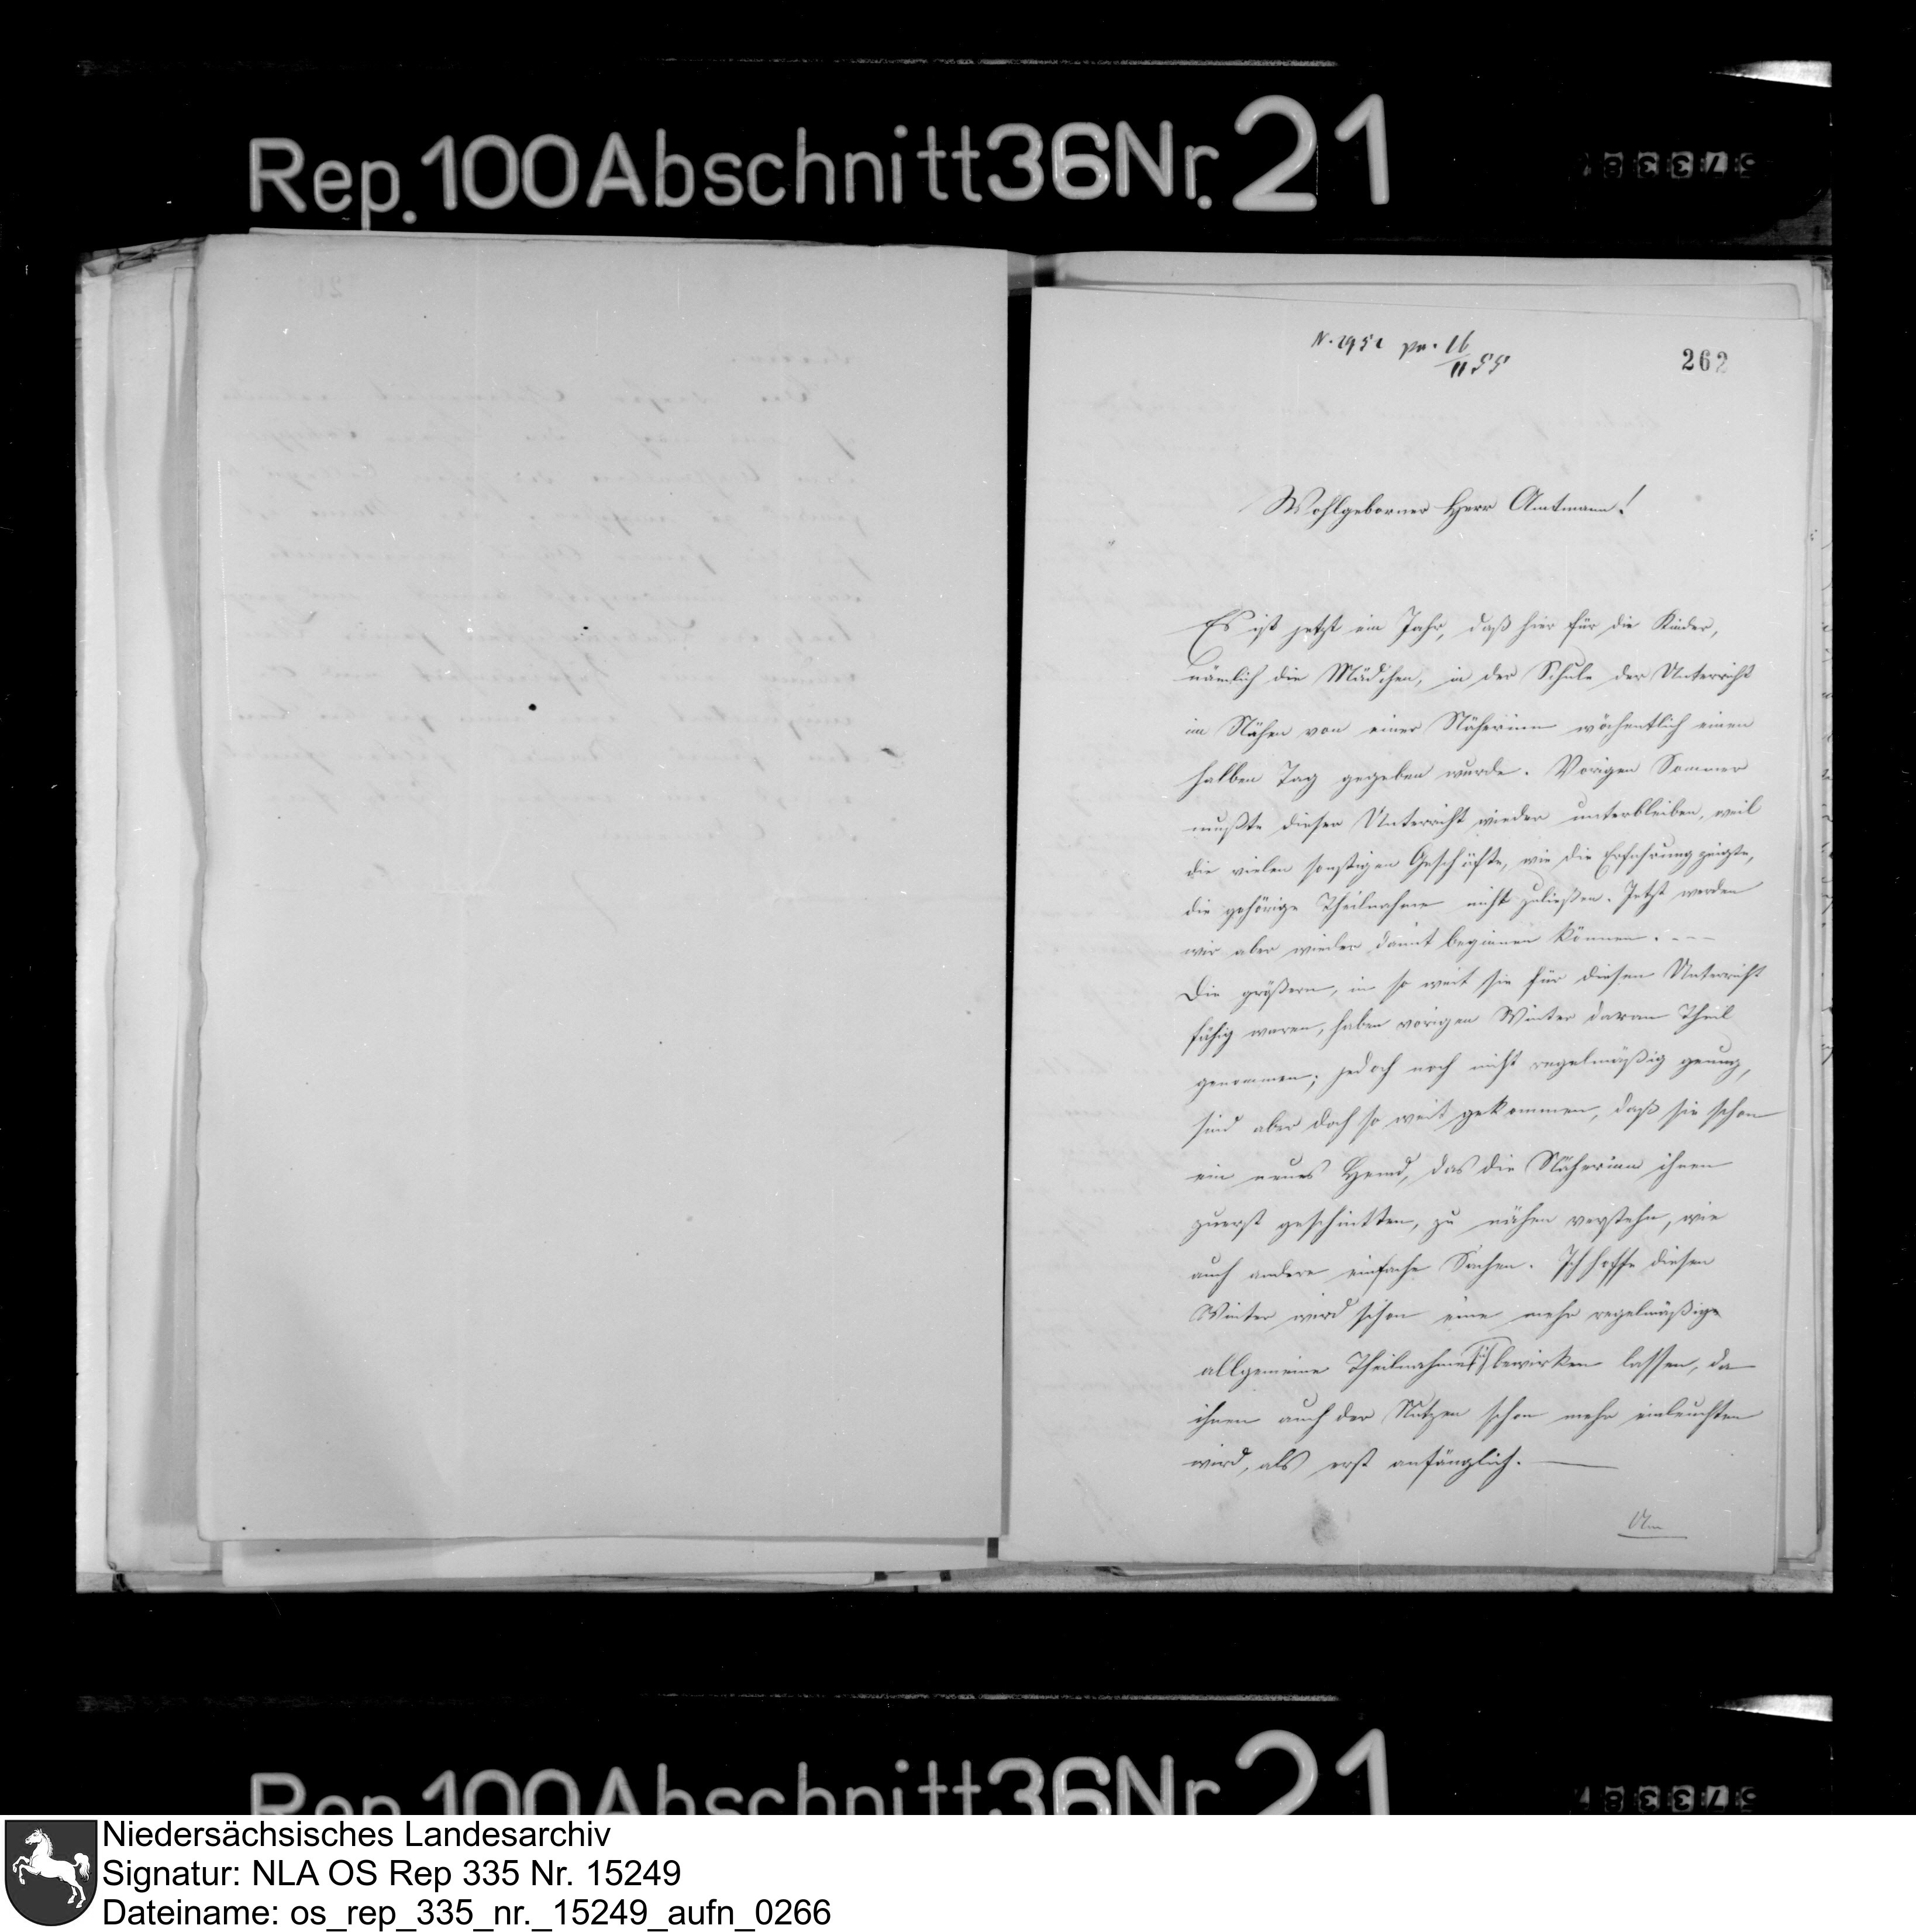 Rep. 100 Abschnitt 36 Nr. 21
N. 2952 pr. 16/11 55
262
Wohlgeborner Herr Amtmann!
Es ist jetzt ein Jahr, daß hier für die Kinder,
nämlich die Mädchen, in der Schule der Unterricht
im Nähen von einer Näherinn wöchentlich einen
halben Tag gegeben wurde. Vorigen Sommer
mußte dieser Unterricht wieder unterbleiben, weil
die vielen sonstigen Geschäfte, wie die Erfahrung zeigte,
die gehörige Theilnahme nicht zuließen. Jetzt werden
wir aber wieder damit beginnen können. ---
Die größern, in so weit sie für diesen Unterricht
fähig waren, haben vorigen Winter daran Theil
genommen; jedoch noch nicht regelmäßig genug,
sind aber doch so weit gekommen, daß sie schon
ein neues Hemd, das die Näherinn ihnen
zuerst geschnitten, zu nähen verstehn, wie
auch andere einfache Sachen. Ich hoffe diesen
Winter wird schon eine mehr regelmäßige
allgemeine Theilnahme sich bewirken lassen, da
ihnen auch der Nutzen schon mehr einleuchten
wird, als erst anfänglich. —
Um
Rep. 100 Abschnitt 36 Nr. 21
Niedersächsisches Landesarchiv
Signatur: NLA OS Rep 335 Nr. 15249
Dateiname: os_rep_335_nr._15249_aufn_0266